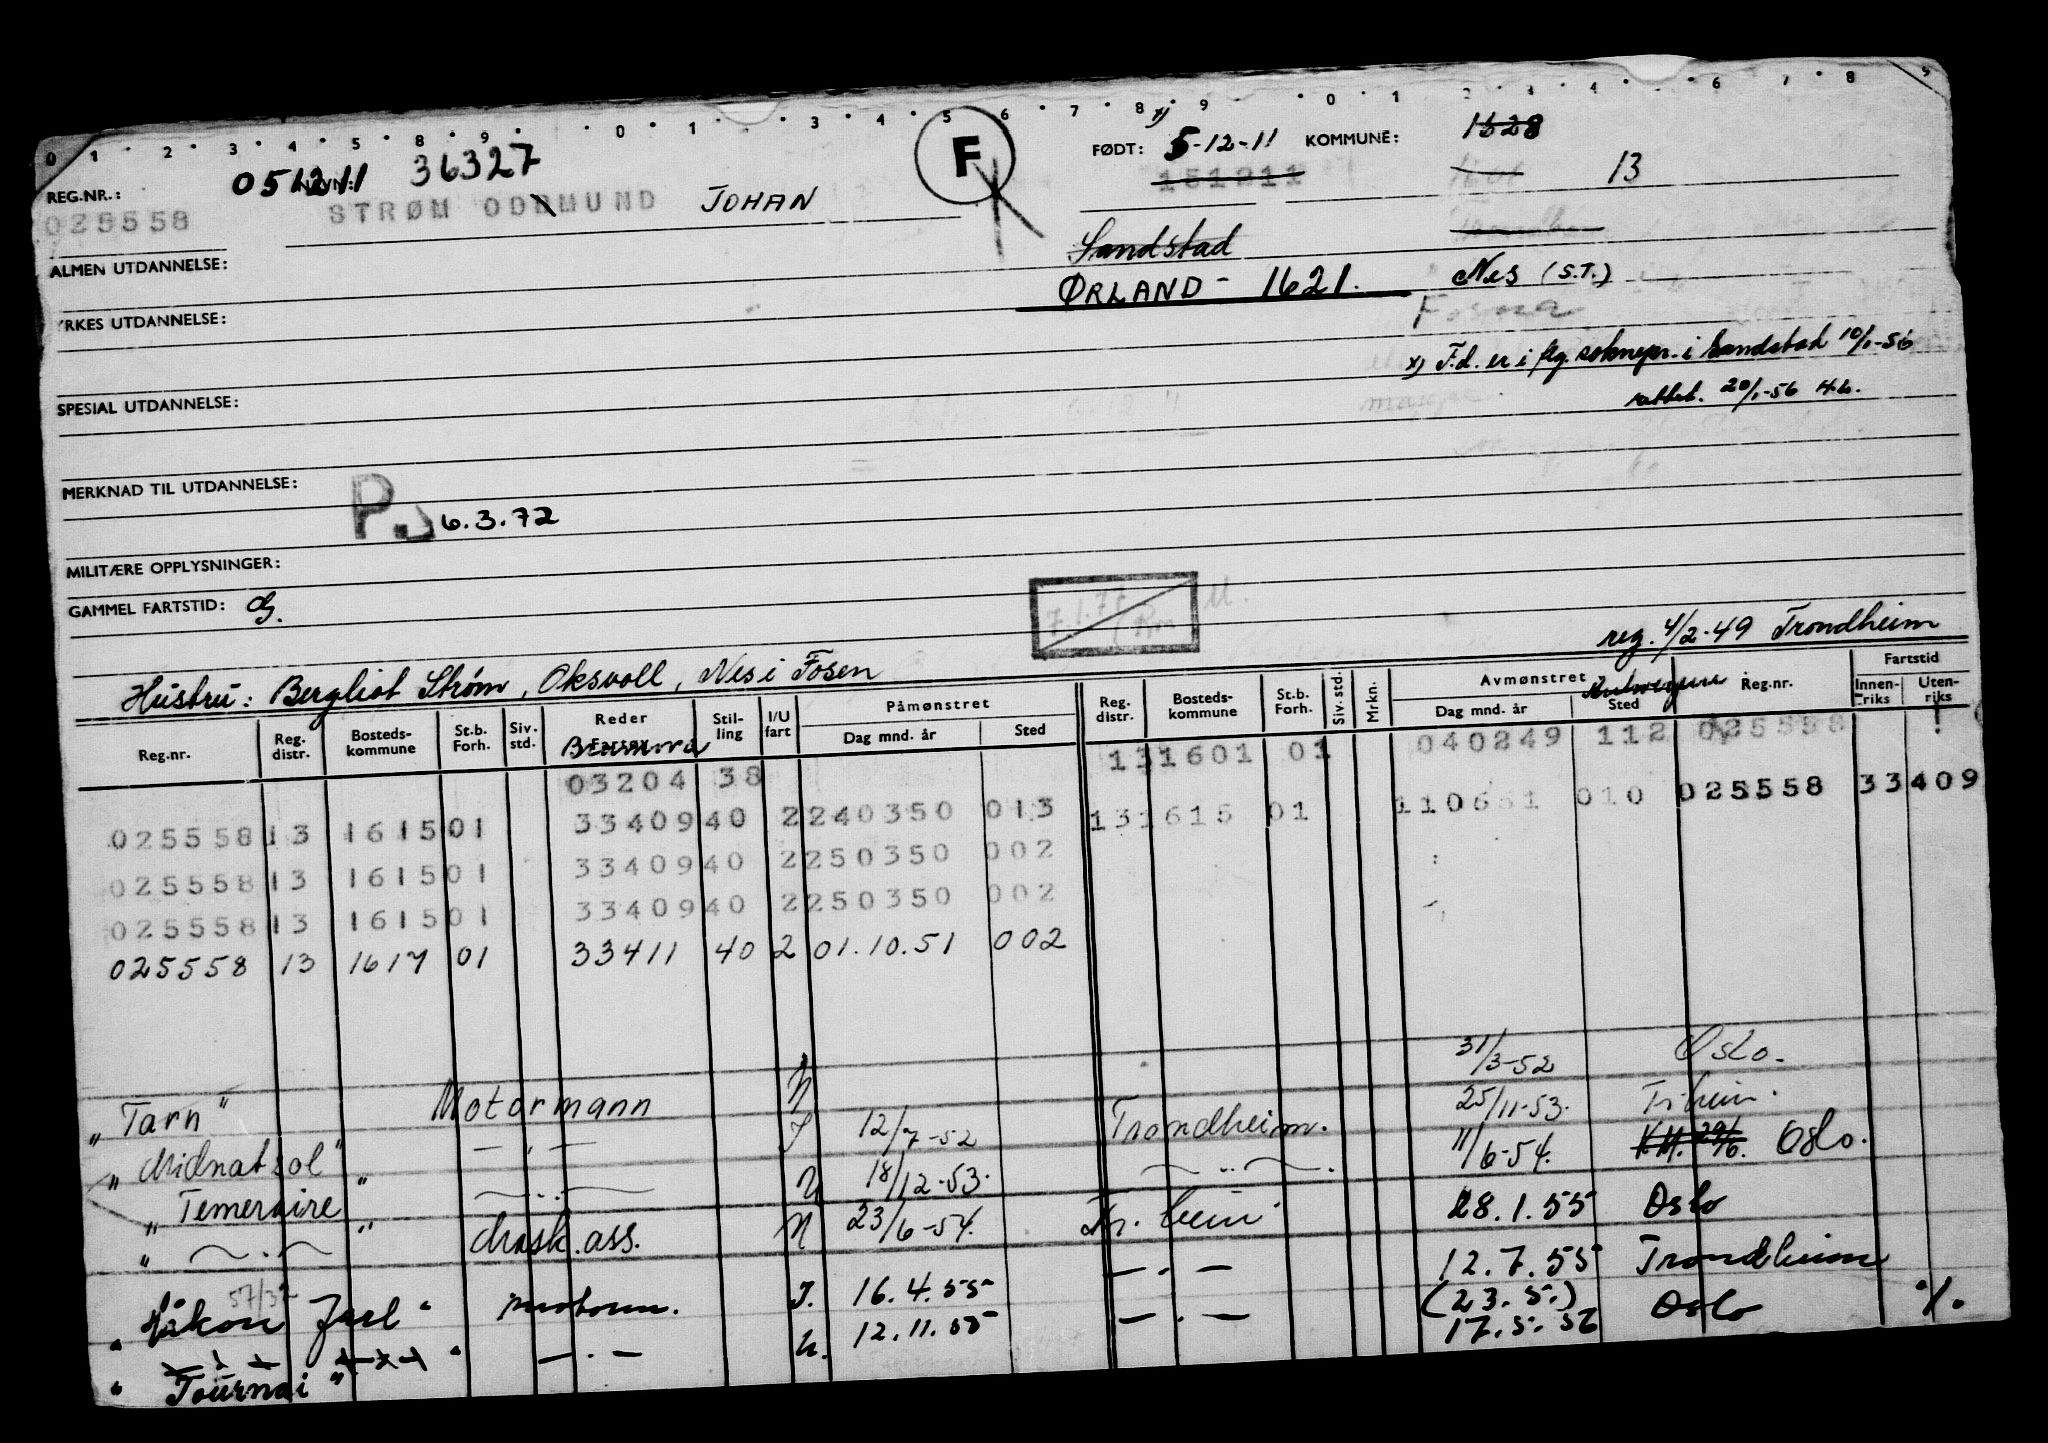 0 1 2 3 4 5 8 9 0 1 3 4 5 6 7 8 9 0 1 2 3 4 6 7 8 9
REG.NR.: 051211 36327 F FØDT: x) 5-12-11 KOMMUNE: 1628
025558 STRØM ODDMUND JOHAN 151211 13
ALMEN UTDANNELSE: Sandstad
ØRLAND - 1621. Nes (S.T.)
YRKES UTDANNELSE: Fosna
x) F.d. er i flg. soknepr. i Sandstad 10/1-56
SPESIAL UTDANNELSE: rettet. 20/1-56
MERKNAD TIL UTDANNELSE:
P. 6.3.72
MILITÆRE OPPLYSNINGER:
GAMMEL FARTSTID: G. 7.1.77 M.
reg. 4/2-49 Trondheim
Hustru: Bergliot Strøm, Oksvoll, Nes i Fosen
Reg.nr. Reg. distr. Bosteds- kommune St.b. Forh. Siv. std. Reder Stil- ling I/U fart Påmønstret Dag mnd. år Sted Reg. distr. Bosteds- kommune St.b. Forh. Siv. std. Mrkn. Avmønstret Dag mnd. år Sted Reg.nr. Fartstid Innen- riks Uten- riks
Antwerpen
03204 38 131601 01 040249 112 025558
025558 13 1615 01 33409 40 2 240350 013 131615 01 110651 010 025558 33409
025558 13 1615 01 33409 40 2 250350 002
025558 13 1615 01 33409 40 2 250350 002
025558 13 1617 01 33411 40 2 01.10.51 002
"Tarn" Motormann U 31/3-52 Oslo.
"Midnatsol" — " — I 12/7-52 Trondheim. 25/11-53. Tr.heim.
"Temeraire" — " — U 18/12-53. — " — 11/6-54. Oslo.
" — " — " Mask.ass. U 23/6-54. Tr.heim 28.1.55 Oslo
57/32
"Håkon Jarl" motorm. I. 16.4.55 — " — 12.7.55 Trondheim
(23.5.)
"Tournai" — " — U. 12.11.55 — " — 17.5.56 Oslo %.